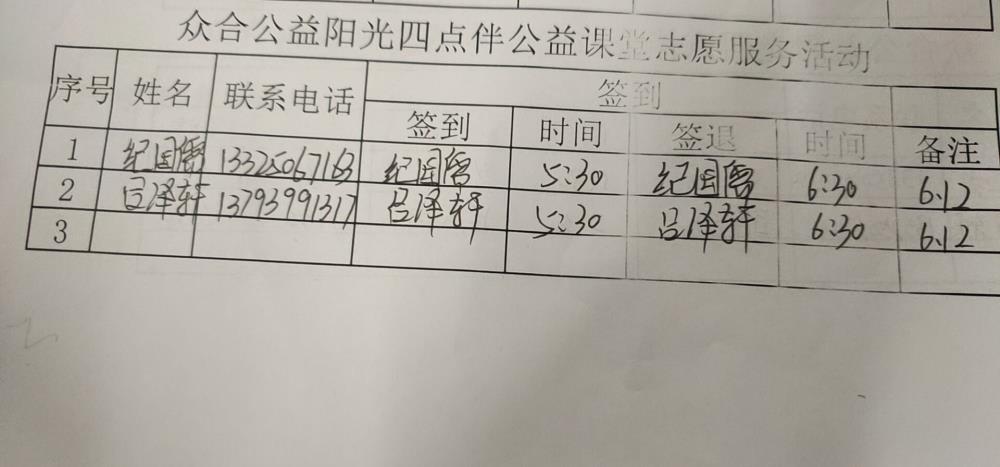 众合公益阳光四点伴公益课堂志愿服务活动
序号 姓名 联系电话 签到
签到 时间 签退 时间 备注
1 纪国儒 13325067163 纪国儒 5:30 纪国儒 6:30 6.12
2 吕泽轩 13793991317 吕泽轩 5:30 吕泽轩 6:30 6.12
3